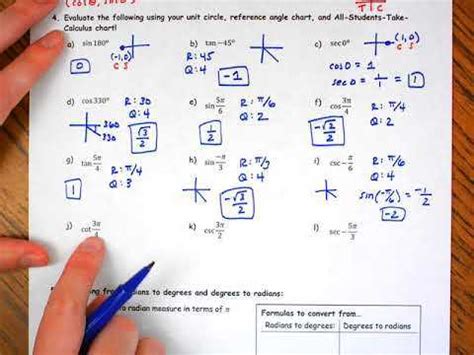 (cosθ, sinθ)
T | C
4. Evaluate the following using your unit circle, reference angle chart, and All-Students-Take-
Calculus chart!
a) sin 180°
(-1,0)
C S
0
b) tan −45°
R: 45
Q: 4
-1
c) sec 0°
(1,0)
C S
cos 0 = 1
sec 0 = 1/1 = 1
d) cos 330°
R: 30
Q: 4
360
330
√3/2
e) sin 5π/6
R: π/6
Q: 2
1/2
f) cos 3π/4
R: π/4
Q: 2
-√2/2
g) tan 5π/4
R: π/4
Q: 3
1
h) sin −π/3
R: π/3
Q: 4
-√3/2
i) csc −π/6
R: π/6
Q: 4
sin(-π/6) = -1/2
-2
j) cot 3π/4
k) csc 3π/2
l) sec −5π/3
from radians to degrees and degrees to radians:
radian measure in terms of π
Formulas to convert from...
Radians to degrees: Degrees to radians: